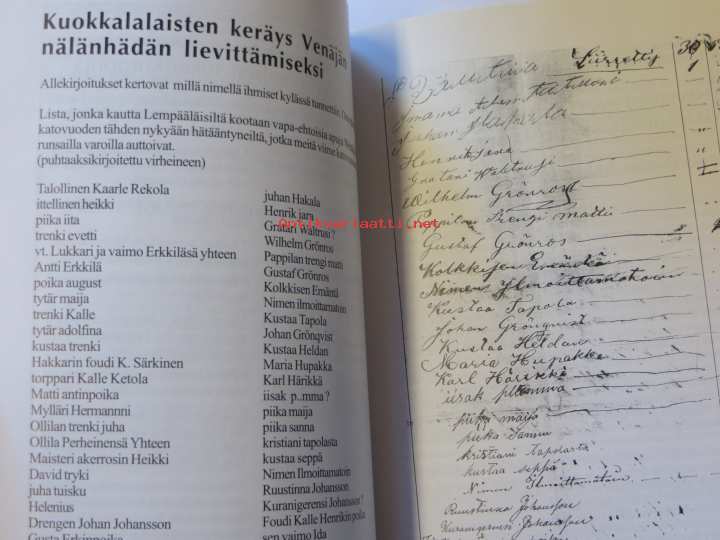 Kuokkalalaisten keräys Venäjän
nälänhädän lievittämiseksi
Allekirjoitukset kertovat millä nimellä ihmiset kylässä tunnettiin.
Lista, jonka kautta Lempääläisiltä kootaan vapa-ehtoisia apuja
katovuoden tähden nykyään hätääntyneiltä, jotka meitä viime
runsailla varoilla auttoivat.
(puhtaaksikirjoitettu virheineen)
Talollinen Kaarle Rekola
ittellinen heikki
piika iita
trenki evetti
vt. Lukkari ja vaimo Erkkiläsä yhteen
Antti Erkkilä
poika august
tytär maija
trenki Kalle
tytär adolfina
kustaa trenki
Hakkarin foudi K. Särkinen
torppari Kalle Ketola
Matti antinpoika
Mylläri Hermannni
Ollilan trenki juha
Ollila Perheinensä Yhteen
Maisteri akerrosin Heikki
David tryki
juha tuisku
Helenius
Drengen Johan Johansson
Gusta Erkinpoika
juhan Hakala
Henrik jara
Gratari Waltrusi ?
Wilhelm Grönros
Pappilan trengi mutti
Gustaf Grönros
Kolkkisen Emäntä
Nimen ilmoittamatoin
Kustaa Tapola
Johan Grönqvist
Kustaa Heldan
Maria Hupakka
Karl Härikkä
iisak p..mma ?
piika maija
piika sanna
kristiani tapolasta
kustaa seppä
Nimen Ilmoittamatoin
Ruustinna Johansson
Kuranigerensi Johansson ?
Foudi Kalle Henrikin poila
sen vaimo Ida
Siirretty
Henrik jara
Wilhelm Grönros
trengi mattii
Gustaf Grönros
Kolkkisen Emäntä
Nimen Ylmoittamatoin
Kustaa Tapola
Johan Grönqvist
Kustaa Heldan
Maria Hupakka
Karl Härikki
iisak
piika maija
piika sanna
kristiani tapolasta
kustaa seppä
Nimen Ilmoittamatoin
Ruustinna Johansson
Johansson
Antikvariaatti.net